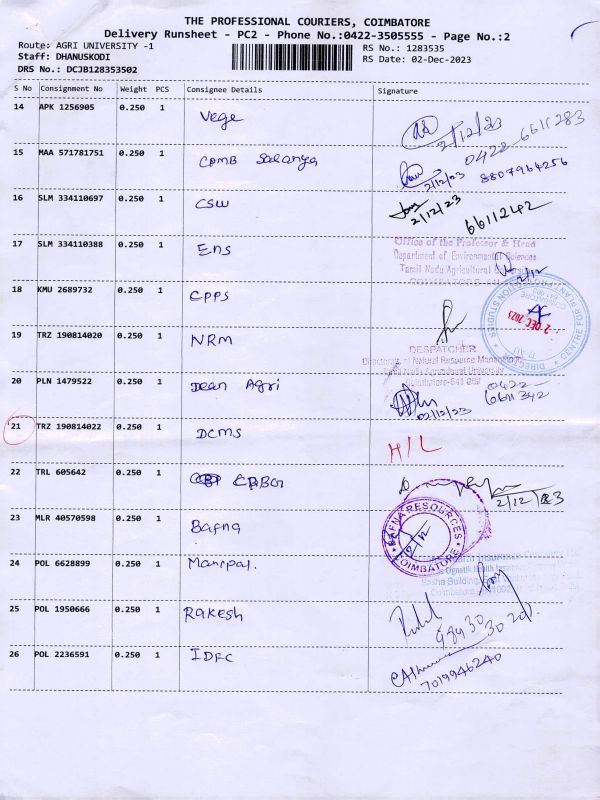 THE PROFESSIONAL COURIERS, COIMBATORE
Delivery Runsheet - PC2 - Phone No.:0422-3505555 - Page No.:2
Route: AGRI UNIVERSITY -1
RS No.: 1283535
Staff: DHANUSKODI
RS Date: 02-Dec-2023
DRS No.: DCJB128353502
S No Consignment No Weight PCS Consignee Details Signature
14 APK 1256905 0.250 1 Vege 2/12/23 0422 6611283
15 MAA 571781751 0.250 1 CPMB 2/12/23 8807964256
16 SLM 334110697 0.250 1 CSW 2/12/23 6611242
17 SLM 334110388 0.250 1 ENS
Office of the Professor & Head
Department of Environmental Sciences
Tamil Nadu Agricultural University
2/12
18 KMU 2689732 0.250 1 CPPS
CENTRE FOR PLANT PROTECTION STUDIES
2 DEC 2023
19 TRZ 190814020 0.250 1 NRM
DESPATCHER
Directorate of Natural Resource Management
Tamil Nadu Agricultural University
Coimbatore-641 003
20 PLN 1479522 0.250 1 Dean Agri 02/12/23 0422-6611342
21 TRZ 190814022 0.250 1 DCMS H/L
22 TRL 605642 0.250 1 2/12/23
23 MLR 40570598 0.250 1 Bafna
BAFNA RESOURCES
2/12
COIMBATORE
24 POL 6628899 0.250 1 Manipal.
25 POL 1950666 0.250 1 Rakesh
26 POL 2236591 0.250 1 IDFC 7019946240